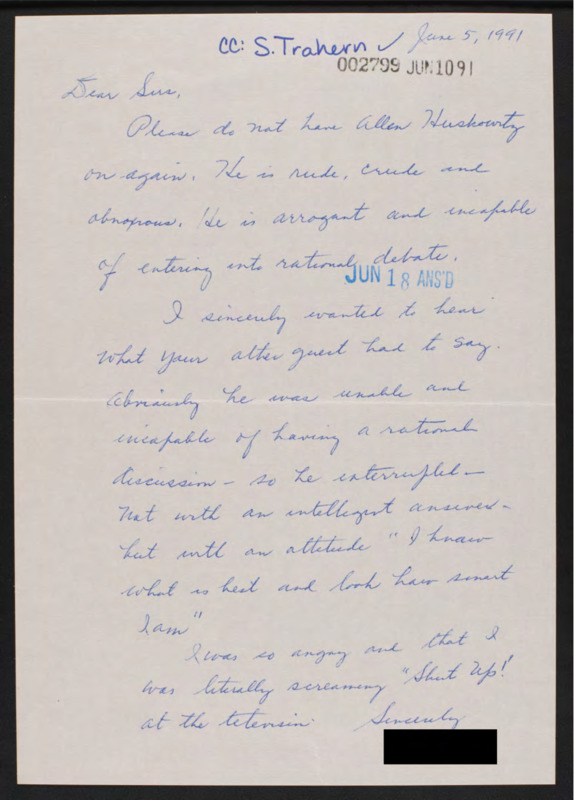 CC: S. Trahern ✓ June 5, 1991
002799 JUN 10 91
Dear Sirs,
Please do not have Allen Huskowitz
on again. He is rude, crude and
obnoxious. He is arrogant and incapable
of entering into rational debate.
JUN 18 ANS'D
I sincerely wanted to hear
what your other guest had to say.
Obviously he was unable and
incapable of having a rational
discussion – so he interrupted –
not with an intelligent answer –
but with an attitude "I know
what is best and look how smart
I am"
I was so angry and that I
was literally screaming "Shut Up!"
at the television. Sincerely